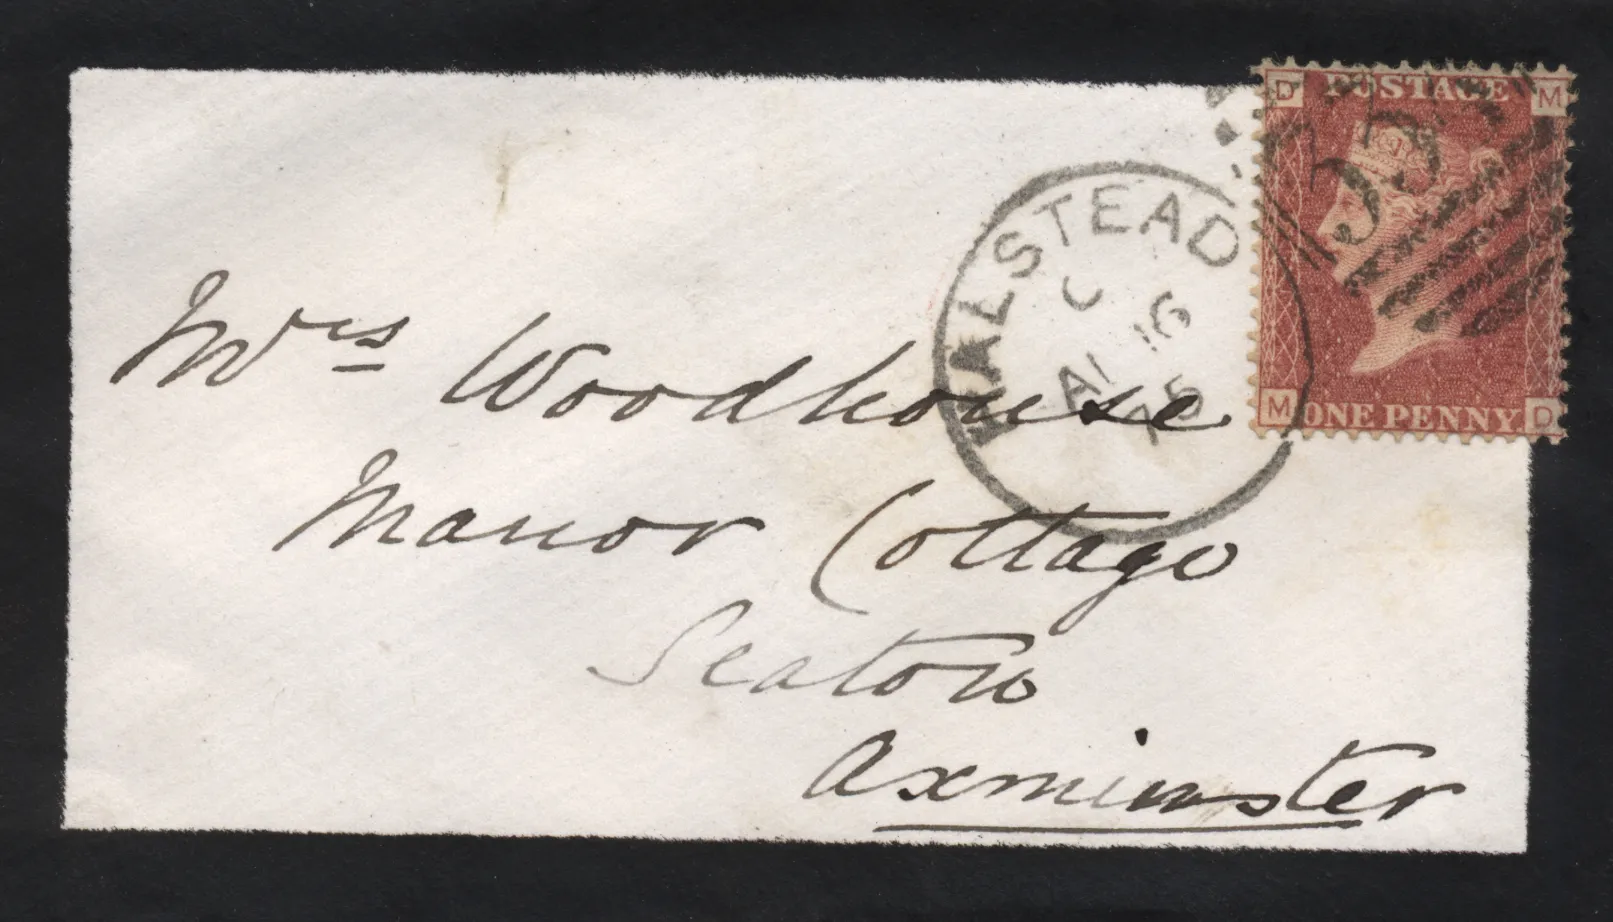 D POSTAGE M
M ONE PENNY D
HALSTEAD
C
AU 16
75
Mrs Woodhouse
Manor Cottage
Seaton
Axminster